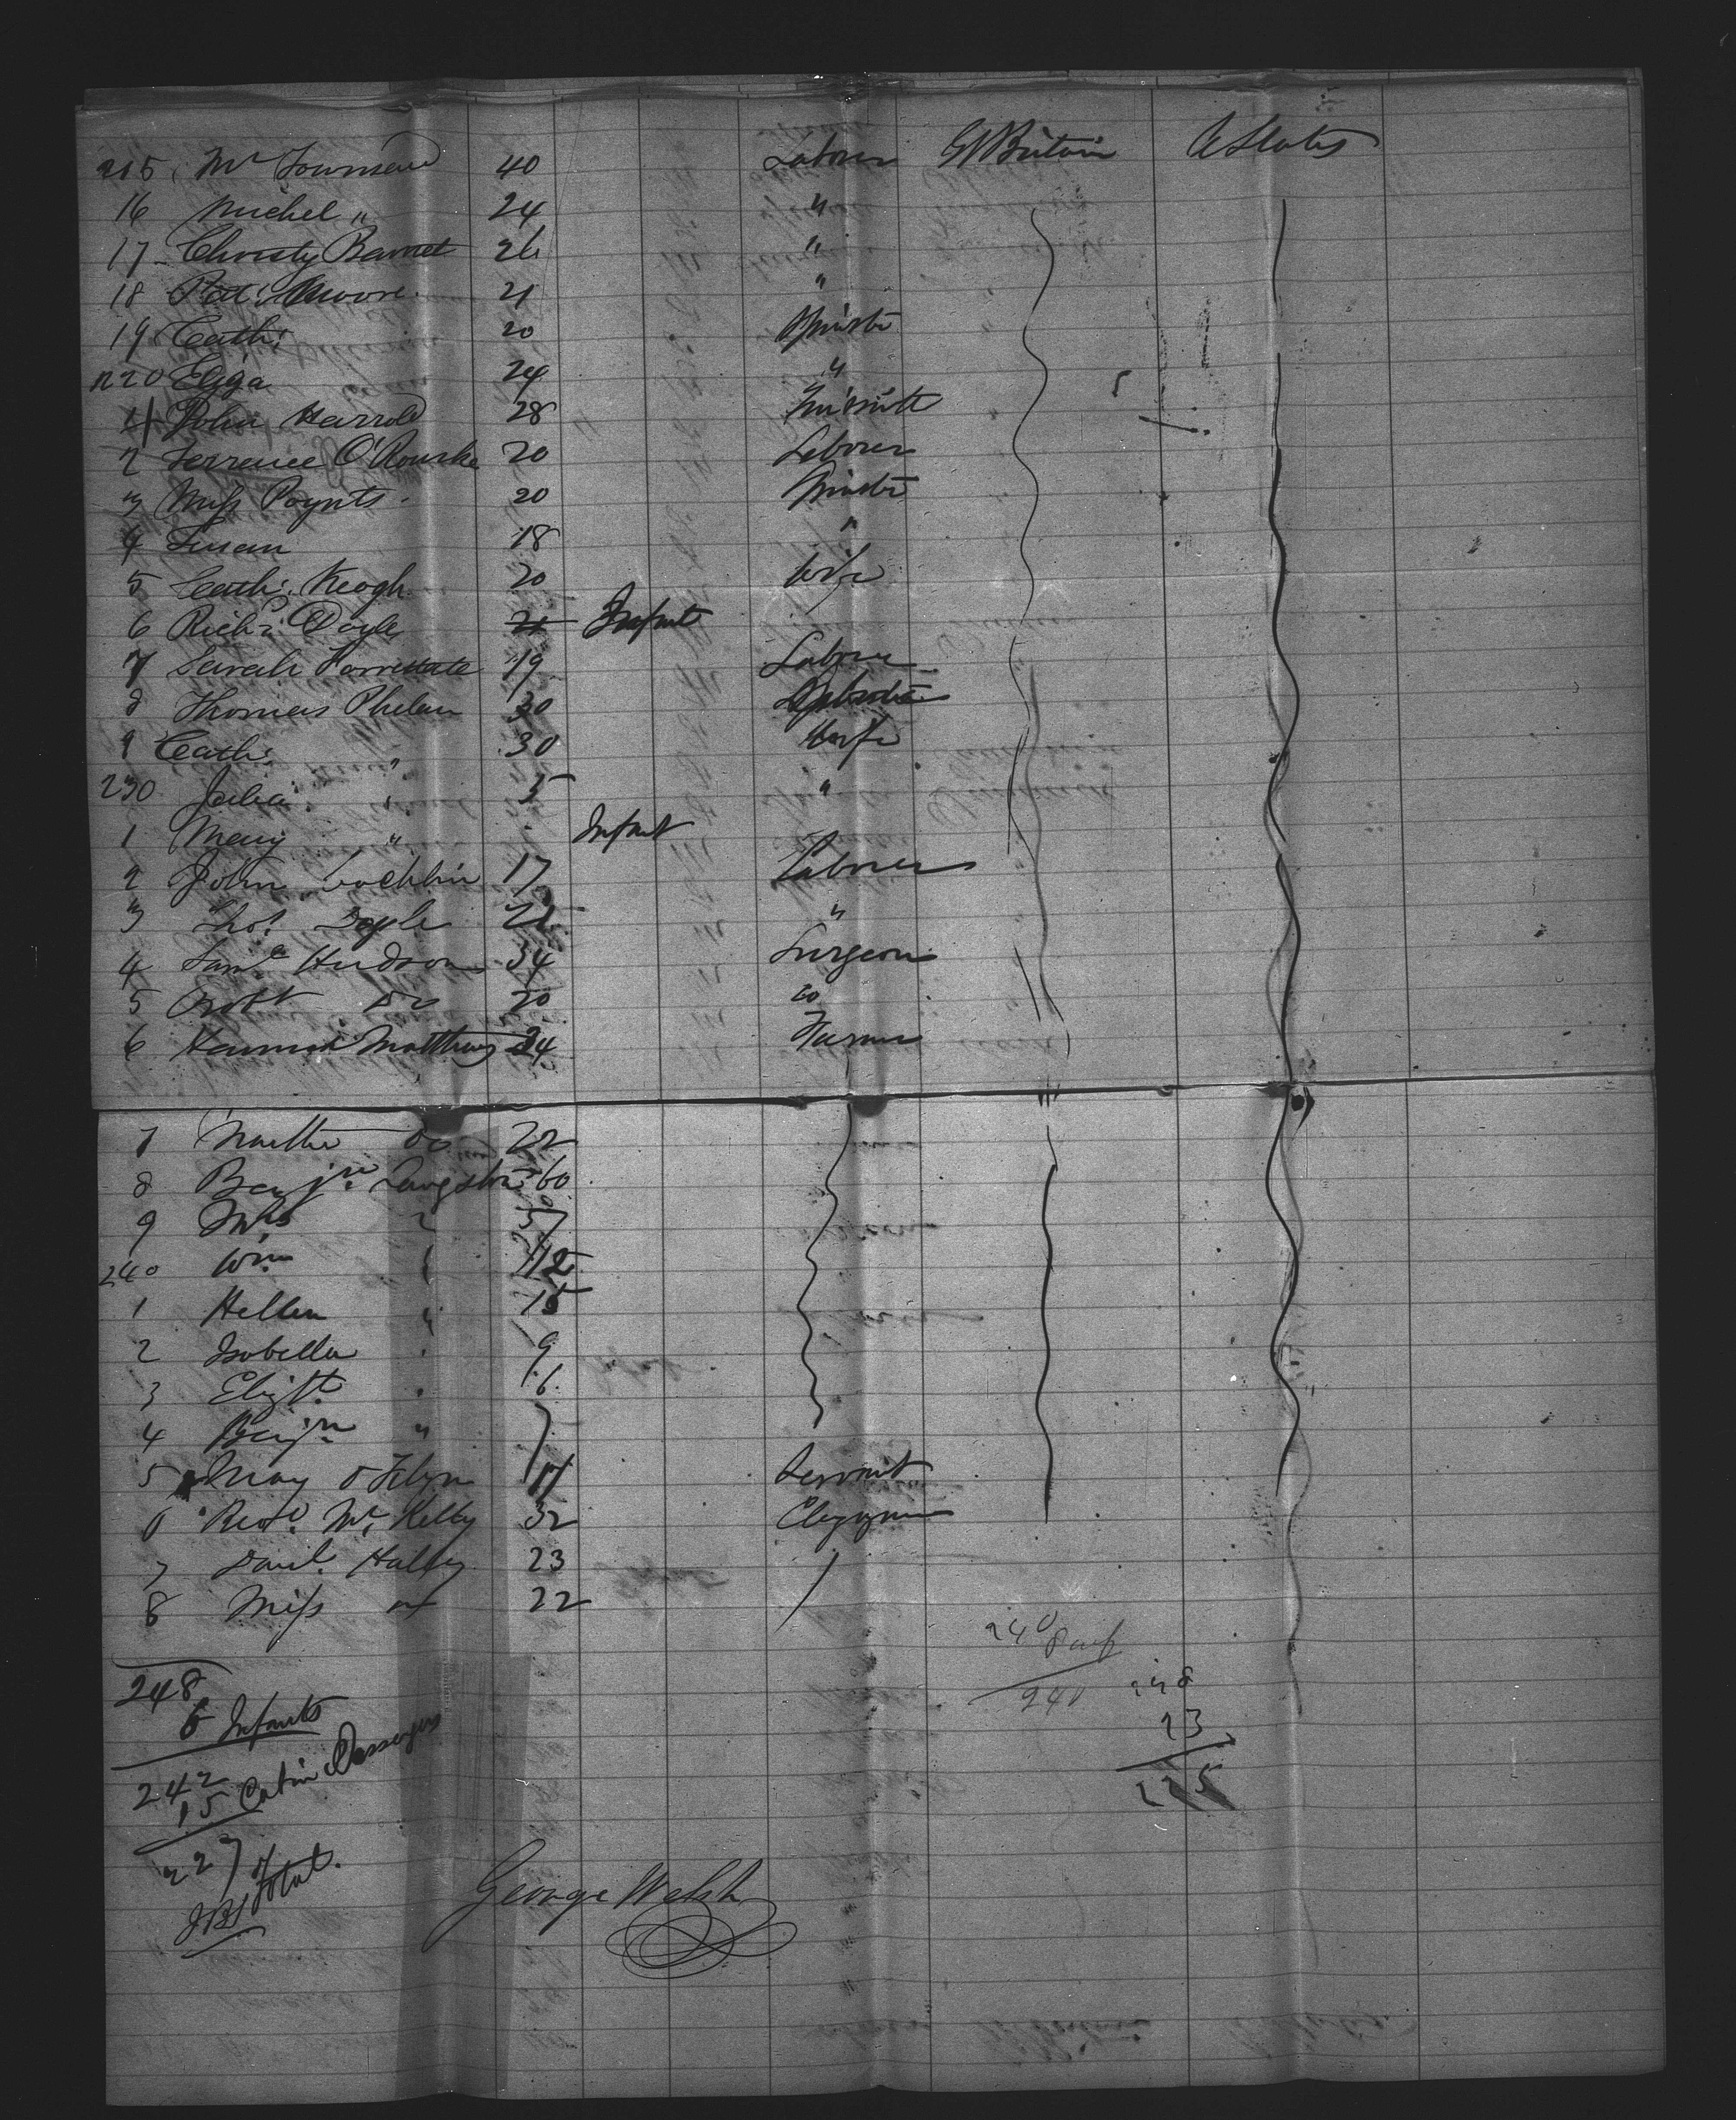 215 Mr Townsend 40 Laborer Gt Britain U States
16 Michel " 24 "
17 Christy Barnet 26 "
18 Pat: Moore 21 "
19 Cath: 20 Spinstr
220 Eliza 24 "
1 John Harrold 28
2 Terrence O'Rourke 20 Laborer
3 Miss Poynts 20 Spinstr
4 Susan 18 "
5 Cath: Keogh 20 Wife
6 Richd: Doyle Infant
7 Sarah 19 Laborer
8 Thomas Phelan 30
9 Cath: " 30 Wife
230 Julia " 5 "
1 Mary " Infant
2 John 17 Laborer
3 Thos Doyle 21 "
4 Saml Hudson 34 Surgeon
5 Robt Do 20 Do
6 Hannah Matthews 34 Farmer
7 Do 22
8 Benjn Langston 60
9 Mrs " 57
240 Wm " 12
1 Hellen " 15
2 Isobella " 9
3 Elizth " 6
4 Benjn " 7
5 Mary O Flyn 17 Servant
6 Revd. Mr. Kelly 32 Clergyman
7 Danl. Hally 23
8 Miss 22
240
248
6 Infants
240
248
23
225
242
15 Cabin Passengers
227
Total.
George Welsh